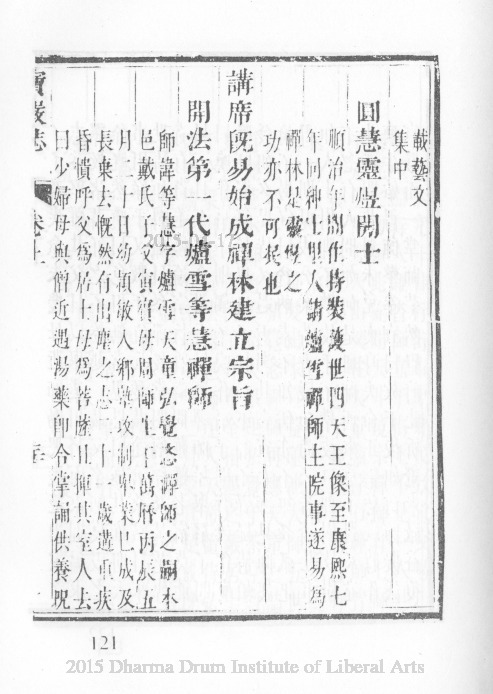 載藝文
集中
圓慧靈煜開士
順治年間住持裝護世四天王像至康熙七
年同紳士里人請爐雪禪師主院事遂易為
禪林是靈煜之
功亦不可泯也
講席既易始成禪林建立宗旨
開法第一代爐雪等慧禪師
師諱等慧字爐雪天童弘覺忞禪師之嗣本
邑戴氏子父寅賓母閻師生于萬曆丙辰五
月二十日幼穎敏入鄉塾攻制舉業已成及
長棄去慨然有出塵之志二十一歲遘重疾
昏憒呼父為居士母為菩薩且揮其室人去
曰少婦毋與僧近遇湯藥即合掌誦供養呪
寶嚴志
卷上
121
2015 Dharma Drum Institute of Liberal Arts